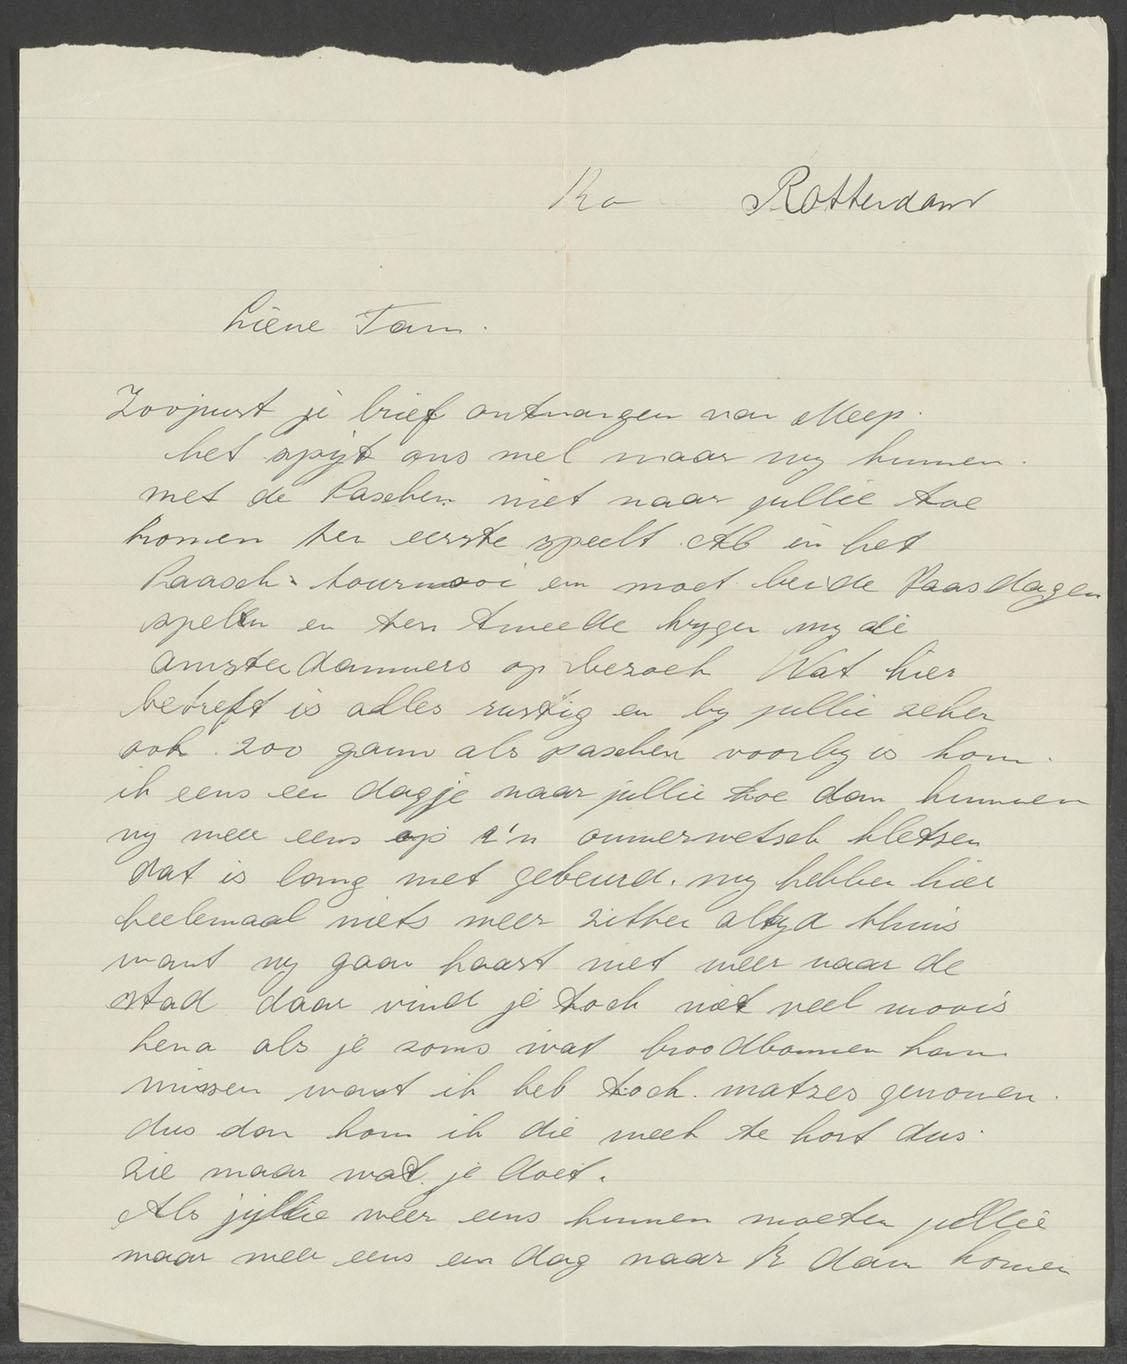 Ro Rotterdam
Lieve Fam.
Zoojuist je brief ontvangen van Meep.
het spijt ons wel maar wy kunnen.
met de Paschen niet naar jullie toe
komen ten eerste speelt Ab in het
Paasch-tournooi en moet beide Paasdagen
spelen en ten tweede krygen wy die
Amsterdammers op bezoek Wat hier
betreft is alles rustig en by jullie zeker
ook. zoo gauw als paschen voorby is kom.
ik eens een dagje naar jullie toe dan kunnen
wy weer eens op z'n ouwerwetsch kletsen
dat is lang niet gebeurd. wy hebben hier
heelemaal niets meer zitten altyd thuis
want wy gaan haast niet meer naar de
stad daar vind je toch niet veel moois
Lena als je soms wat broodbonnen kan
missen want ik heb toch matzes genomen.
dus dan kom ik die week te kort dus.
zie maar wat je doet.
Als jullie weer eens kunnen moeten jullie
maar weer eens een dag naar R dam komen